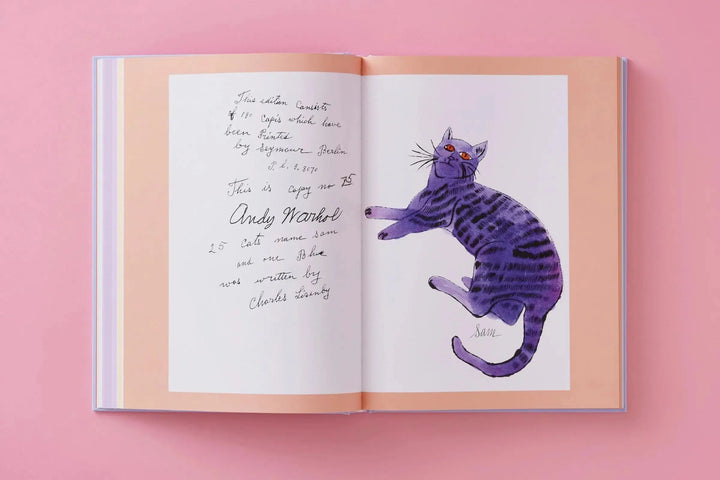 This edition Consists
of 190 Copis which have
been Printed
by Seymour Berlin
P. L. 9. 8070
This is copy no 75
Andy Warhol
25 Cats name sam
and one Blue
was written by
Charles Lisanby
Sam